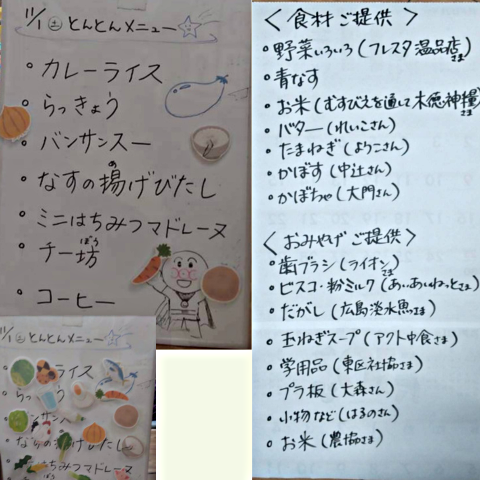 11/1 土 とんとんメニュー
・カレーライス
・らっきょう
・バンサンスー
・なすの揚げびたし
・ミニはちみつマドレーヌ
・チー坊
ぼう
・コーヒー
11/1 土 とんとんメニュー
ライス
らっ
ンサンス
なすの揚げびたし
はちみつマドレーヌ
＜食材ご提供＞
・野菜いろいろ(フレスタ温品店さま)
・青なす
・お米(むすびえを通して木徳神糧さま)
・バター(れいこさん)
・たまねぎ(よりこさん)
・かぼす(中辻さん)
・かぼちゃ(大門さん)
＜おみやげご提供＞
・歯ブラシ(ライオンさま)
・ビスコ・粉ミルク(あいあいねっとさま)
・だがし(広島淡水魚さま)
・玉ねぎスープ(アクト中食さま)
・学用品(東区社協さま)
・プラ板(大森さん)
・小物など(はるのさん)
・お米(農協さま)